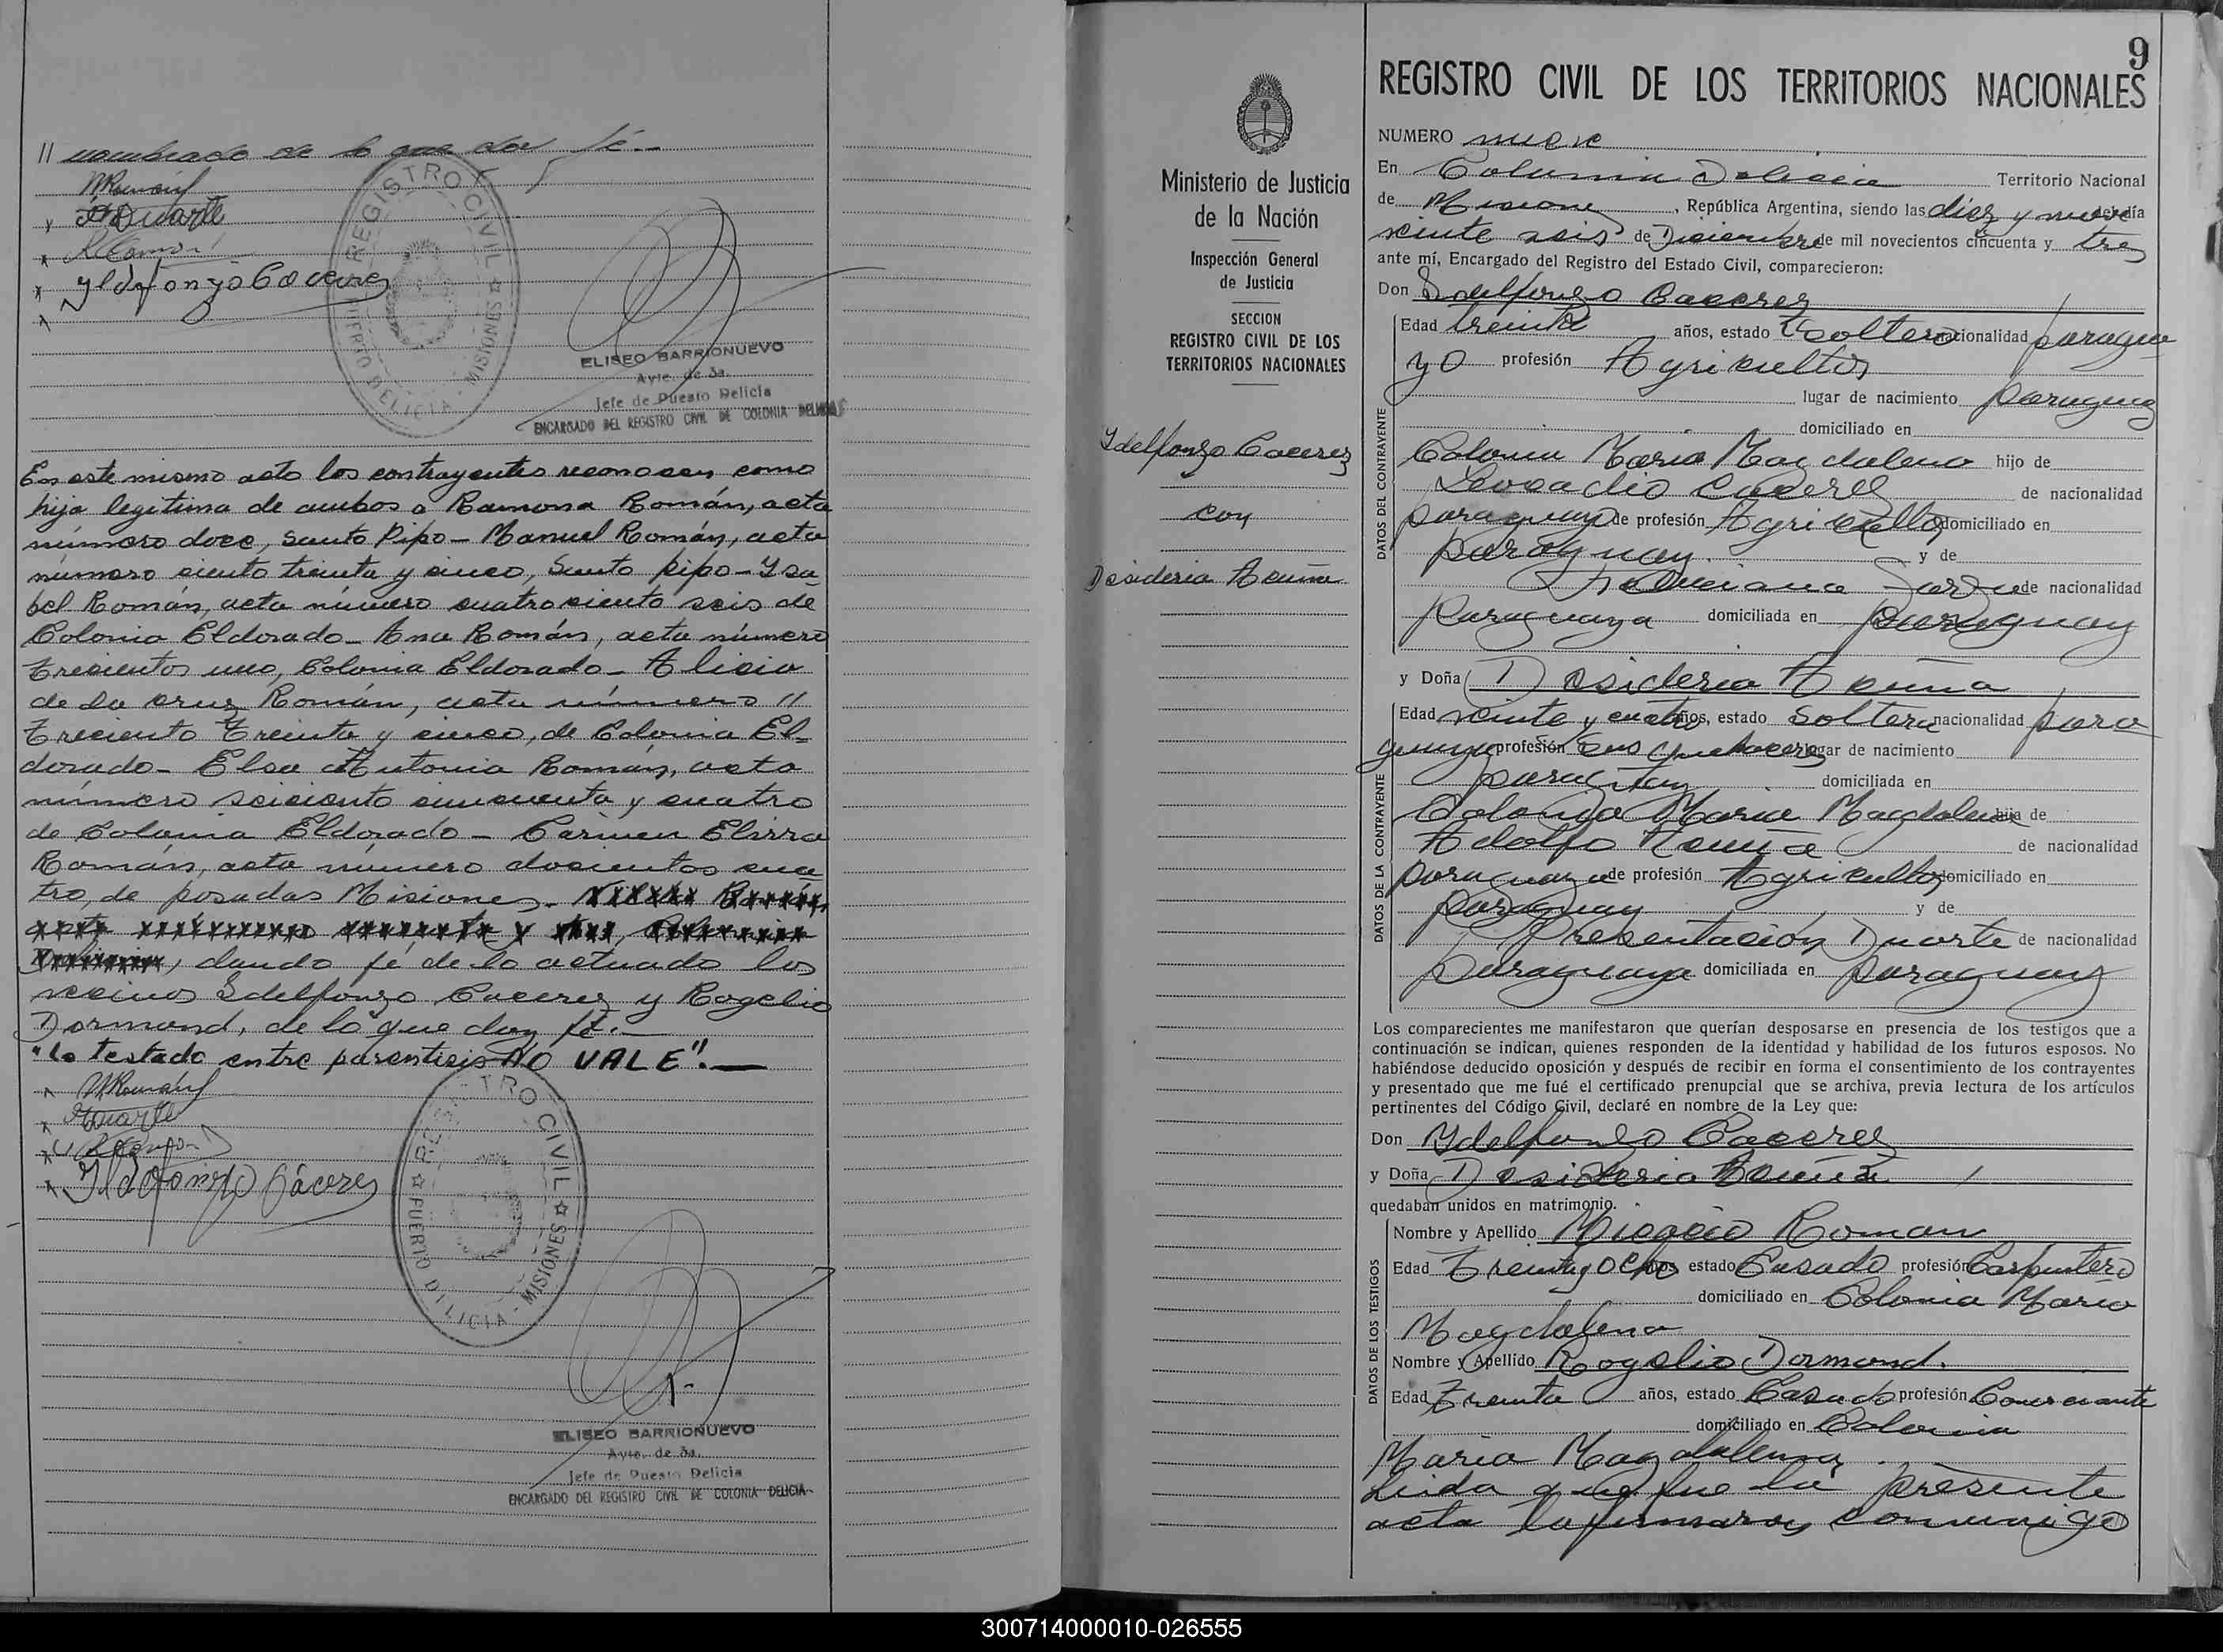 // nombrado de lo que doy fé.-
MRomán
x Duarte
x
x Yldfonzo Caceres
x
REGISTRO CIVIL
PUERTO DELICIA - MISIONES
ELISEO BARRIONUEVO
Ayte. de 3a.
Jefe de Puesto Delicia
ENCARGADO DEL REGISTRO CIVIL DE COLONIA DELICIA
En este mismo acto los contrayentes reconocen como
hija legitima de ambos a Ramona Román, acta
número doce, Santo Pipo - Manuel Román, acta
número ciento treinta y cinco, Santo pipo - Ysa
bel Román, acta número cuatrociento seis de
Colonia Eldorado - Ana Román, acta número
trecientos uno, Colonia Eldorado - Alicia
de la cruz Román, acta número //
treciento treinta y cinco, de Colonia El-
dorado - Elsa Antonia Román, acta
número seiciento cincuenta y cuatro
de Colonia Eldorado - Carmen Elirra
Román, acta número docientos cua
tro, de posadas Misiones -
, dando fé de lo actuado los
vecinos Ydelfonzo Caceres y Rogelio
Dormond, de lo que doy fé.-
"Lo testado entre parentisis NO VALE".-
x MRomán
x Duarte
x
x Yldfonzo Cáceres
REGISTRO CIVIL
PUERTO DELICIA - MISIONES
ELISEO BARRIONUEVO
Ayte. de 3a.
Jefe de Puesto Delicia
ENCARGADO DEL REGISTRO CIVIL DE COLONIA DELICIA
Ministerio de Justicia
de la Nación
Inspección General
de Justicia
SECCION
REGISTRO CIVIL DE LOS
TERRITORIOS NACIONALES
Ydelfonzo Caceres
con
Desideria Acuña
9
REGISTRO CIVIL DE LOS TERRITORIOS NACIONALES
NUMERO nueve
En Colonia Delicia Territorio Nacional
de Misiones, República Argentina, siendo las diez y nueve del día
veinte seis de Diciembre de mil novecientos cincuenta y tres
ante mí, Encargado del Registro del Estado Civil, comparecieron:
Don Ydelfonzo Caceres
DATOS DEL CONTRAYENTE
Edad treinta años, estado Soltero nacionalidad paragua
yo profesión Agricultor
lugar de nacimiento paraguay
domiciliado en
Colonia Maria Magdalena hijo de
Leocadio Caceres de nacionalidad
paraguayo de profesión Agricultor domiciliado en
paraguay y de
Feliciana de nacionalidad
paraguaya domiciliada en paraguay
y Doña Desideria Acuña
DATOS DE LA CONTRAYENTE
Edad veinte y cuatro años, estado Soltera nacionalidad para
guaya profesión sus quehaceres lugar de nacimiento
paraguay domiciliada en
Colonia Maria Magdalena hija de
Adolfo Acuña de nacionalidad
paraguaya de profesión Agricultor domiciliado en
paraguay y de
Presentación Duarte de nacionalidad
paraguaya domiciliada en paraguay
Los comparecientes me manifestaron que querían desposarse en presencia de los testigos que a
continuación se indican, quienes responden de la identidad y habilidad de los futuros esposos. No
habiéndose deducido oposición y después de recibir en forma el consentimiento de los contrayentes
y presentado que me fué el certificado prenupcial que se archiva, previa lectura de los artículos
pertinentes del Código Civil, declaré en nombre de la Ley que:
Don Ydelfonzo Caceres
y Doña Desideria Acuña
quedaban unidos en matrimonio.
DATOS DE LOS TESTIGOS
Nombre y Apellido Roman
Edad treinta y ocho años estado Casado profesión Carpintero
domiciliado en Colonia Maria
Magdalena
Nombre y Apellido Rogelio Dormond.
Edad treinta años, estado Casado profesión Comerciante
domiciliado en Colonia
Maria Magdalena
Leida que fue la presente
acta la firmaron conmigo
300714000010-026555